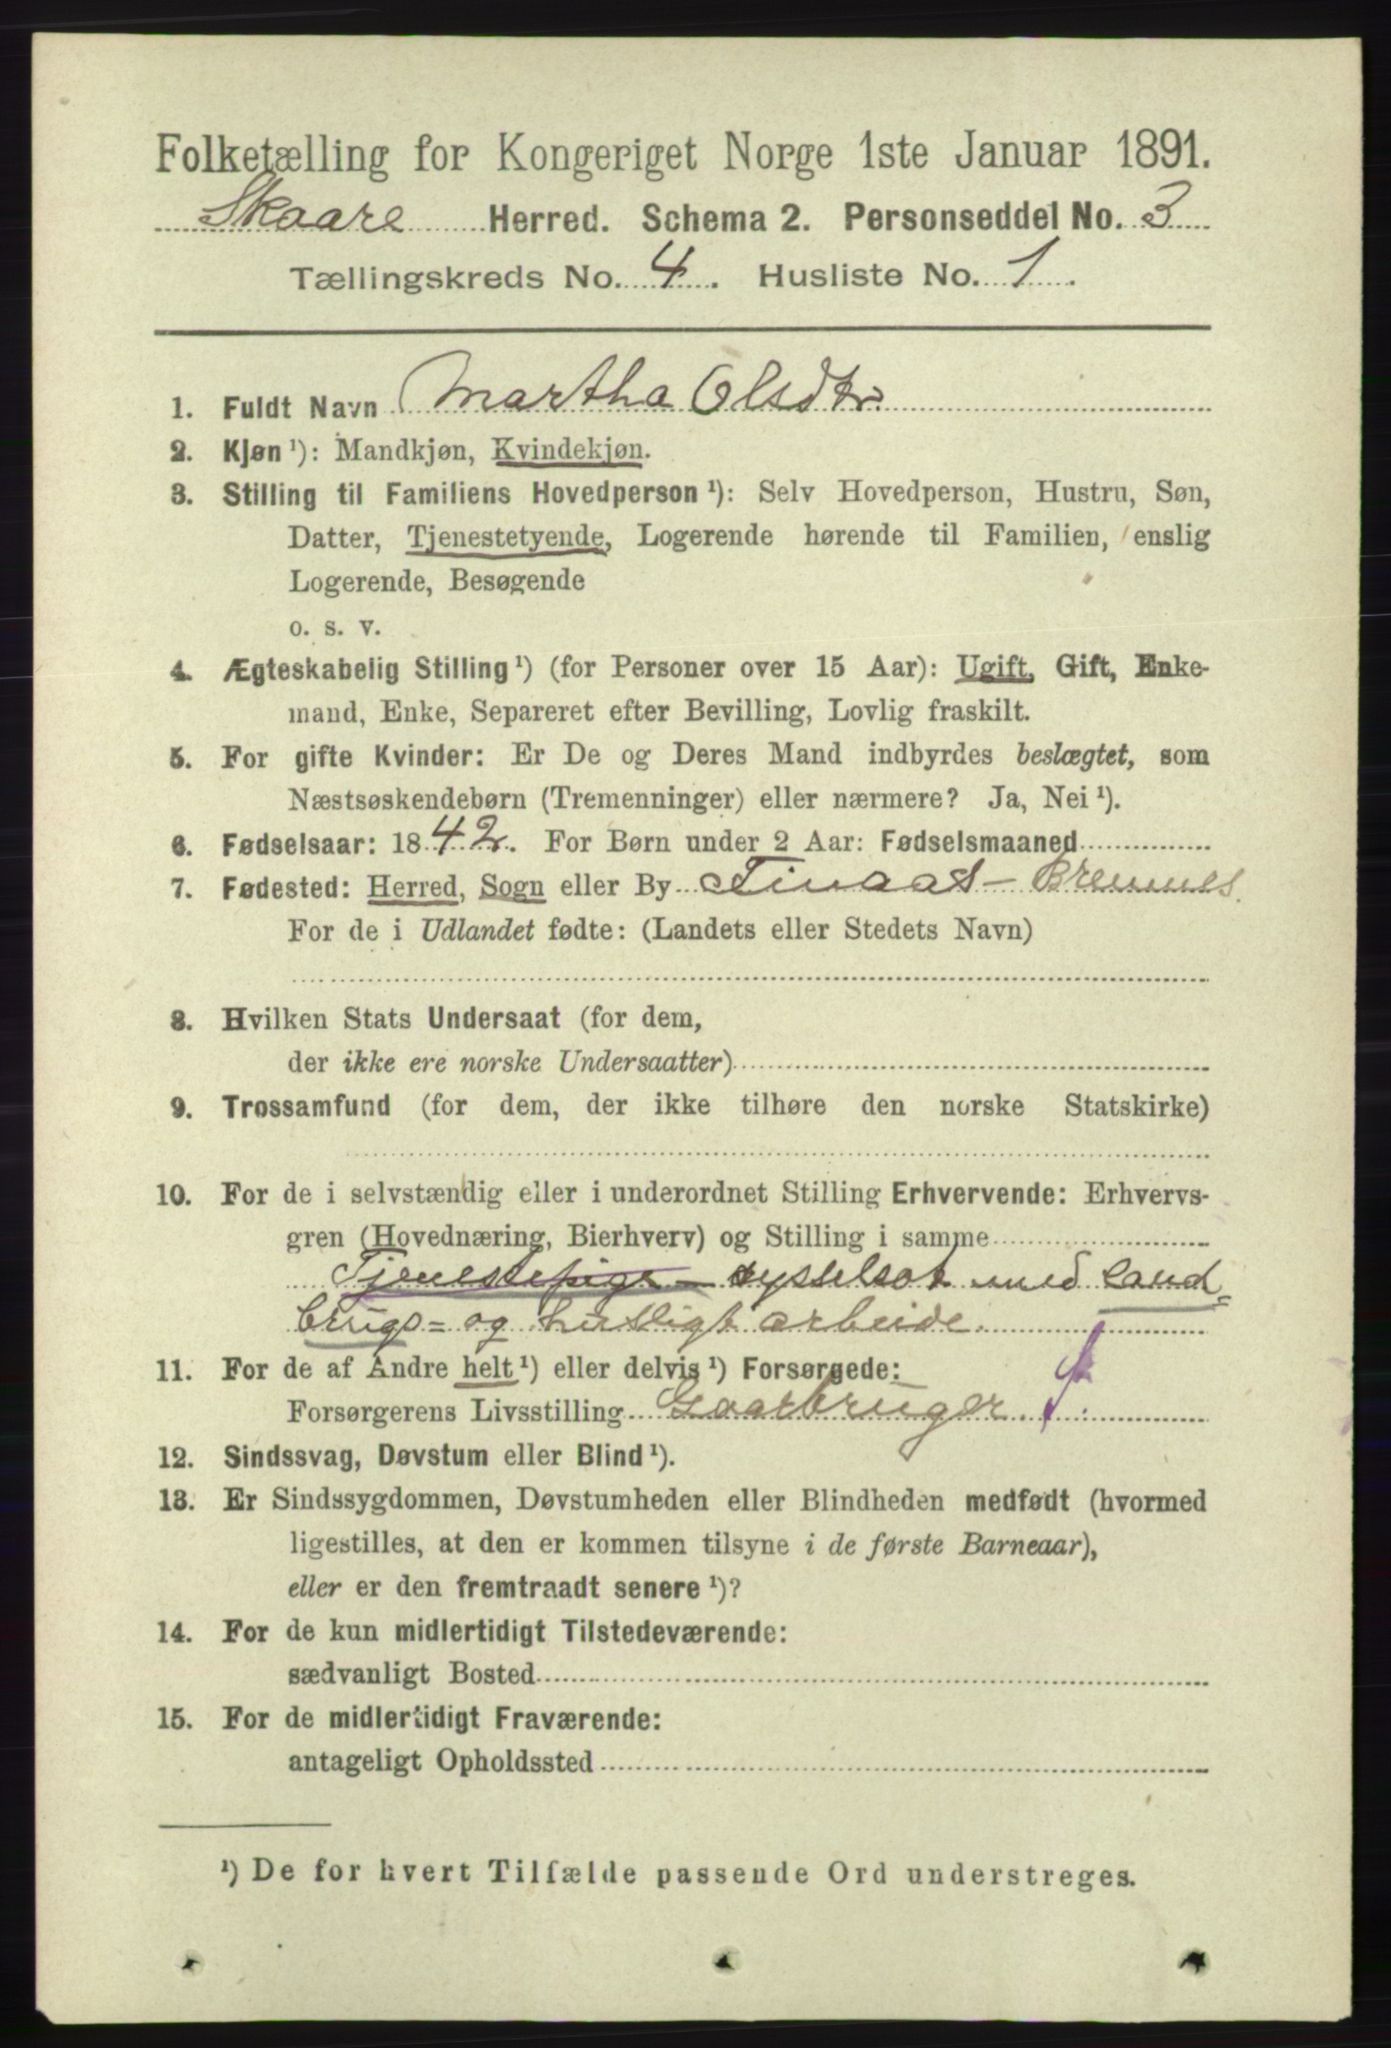 Folketælling for Kongeriget Norge 1ste Januar 1891.
Skaare Herred. Schema 2. Personseddel No. 3
Tællingskreds No. 4. Husliste No. 1.
1. Fuldt Navn Martha Olsdtr.
2. Kjøn ¹): Mandkjøn, Kvindekjøn.
3. Stilling til Familiens Hovedperson ¹): Selv Hovedperson, Hustru, Søn,
Datter, Tjenestetyende, Logerende hørende til Familien, enslig
Logerende, Besøgende
o. s. v.
4. Ægteskabelig Stilling ¹) (for Personer over 15 Aar): Ugift, Gift, Enke-
mand, Enke, Separeret efter Bevilling, Lovlig fraskilt.
5. For gifte Kvinder: Er De og Deres Mand indbyrdes beslægtet, som
Næstsøskendebørn (Tremenninger) eller nærmere? Ja, Nei ¹).
6. Fødselsaar: 1842. For Børn under 2 Aar: Fødselsmaaned
7. Fødested: Herred, Sogn eller By Finaas - Bremnes.
For de i Udlandet fødte: (Landets eller Stedets Navn)
8. Hvilken Stats Undersaat (for dem,
der ikke ere norske Undersaatter)
9. Trossamfund (for dem, der ikke tilhøre den norske Statskirke)
10. For de i selvstændig eller i underordnet Stilling Erhvervende: Erhvervs-
gren (Hovednæring, Bierhverv) og Stilling i samme
Tjenestepige - sysselsat med Land=
brugs= og husligt arbeide.
11. For de af Andre helt ¹) eller delvis ¹) Forsørgede:
Forsørgerens Livsstilling Gaarbruger.
12. Sindssvag, Døvstum eller Blind ¹).
13. Er Sindssygdommen, Døvstumheden eller Blindheden medfødt (hvormed
ligestilles, at den er kommen tilsyne i de første Barneaar),
eller er den fremtraadt senere ¹)?
14. For de kun midlertidigt Tilstedeværende:
sædvanligt Bosted
15. For de midlertidigt Fraværende:
antageligt Opholdssted
¹) De for hvert Tilfælde passende Ord understreges.